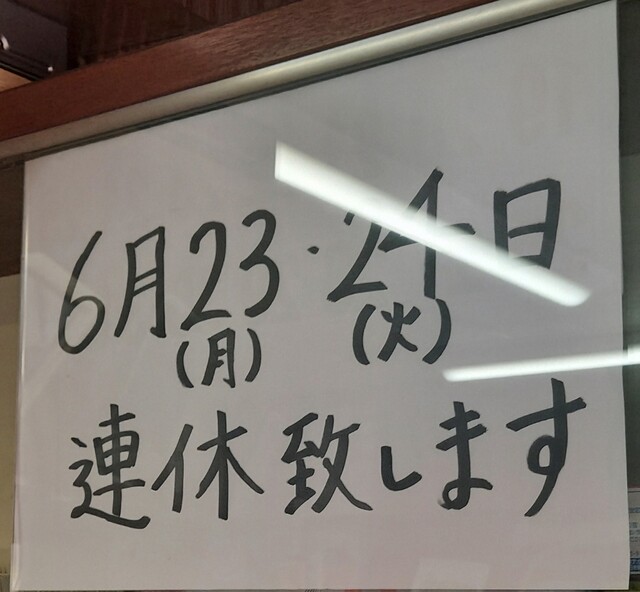 6月23・24日
(月) (火)
連休致します